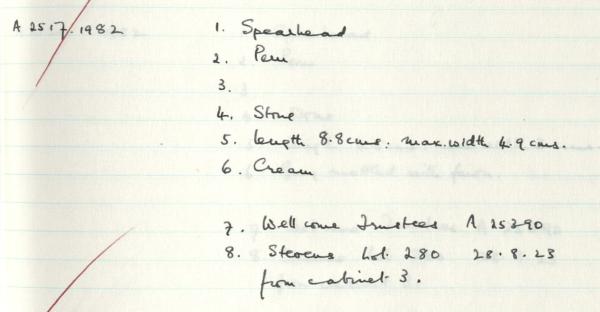 A 2517.1982
1. Spearhead
2. Peru
3.
4. Stone
5. Length 8.8cms. max.width 4.9cms.
6. Cream
7. Wellcome Trustees A 25390
8. Stevens Lot 280 28.8.23
from cabinet 3.